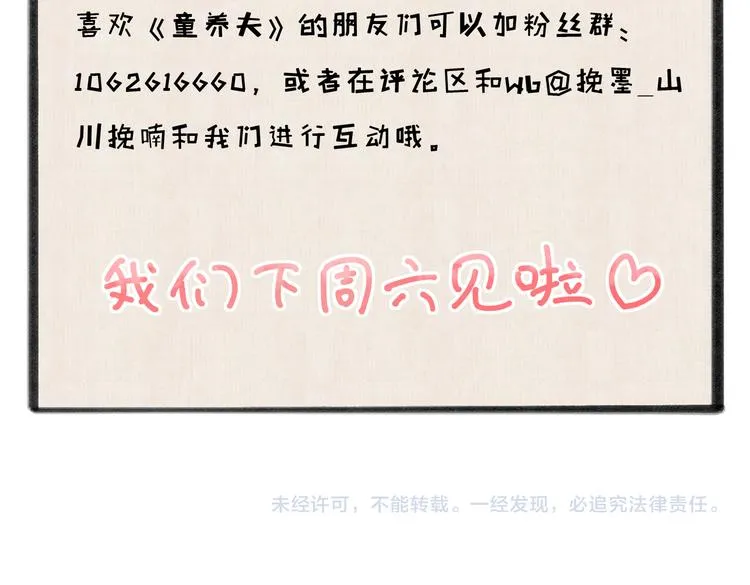 喜欢《童养夫》的朋友们可以加粉丝群：
1062616660，或者在评论区和Wb@挽墨_山
川挽喃和我们进行互动哦。
我们下周六见啦♡
未经许可，不能转载。一经发现，必追究法律责任。